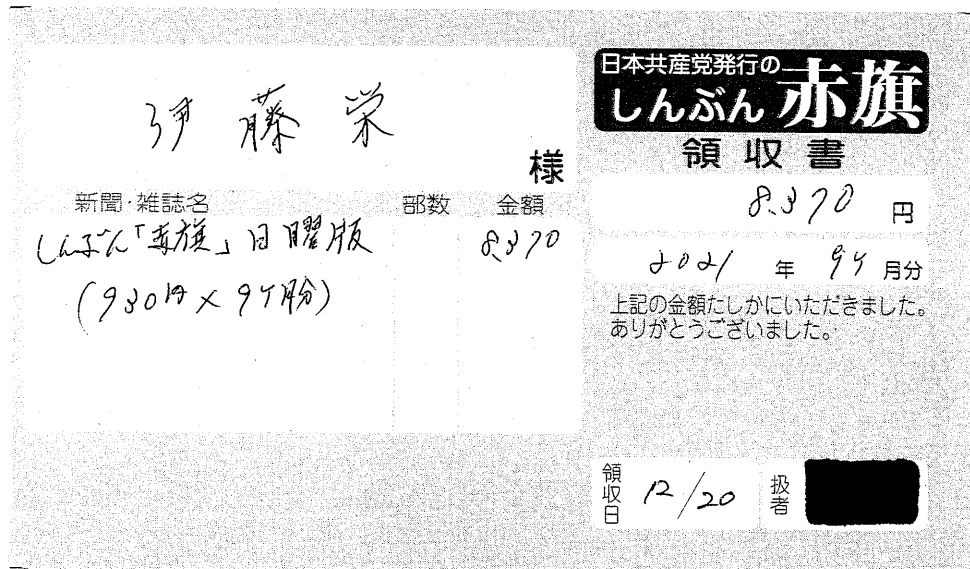 伊藤栄
様
新聞・雑誌名 部数 金額
しんぶん「赤旗」日曜版 8,370
(930円×9ケ月分)
日本共産党発行の
しんぶん赤旗
領収書
8,370 円
2021 年 9ケ 月分
上記の金額たしかにいただきました。
ありがとうございました。
領収日 12/20 扱者